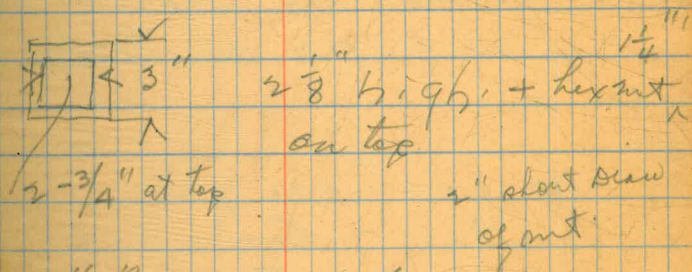 1 1/4"
3" 2 1/8" high + hex nut
on top
2-3/4" at top
2" short
of nut.